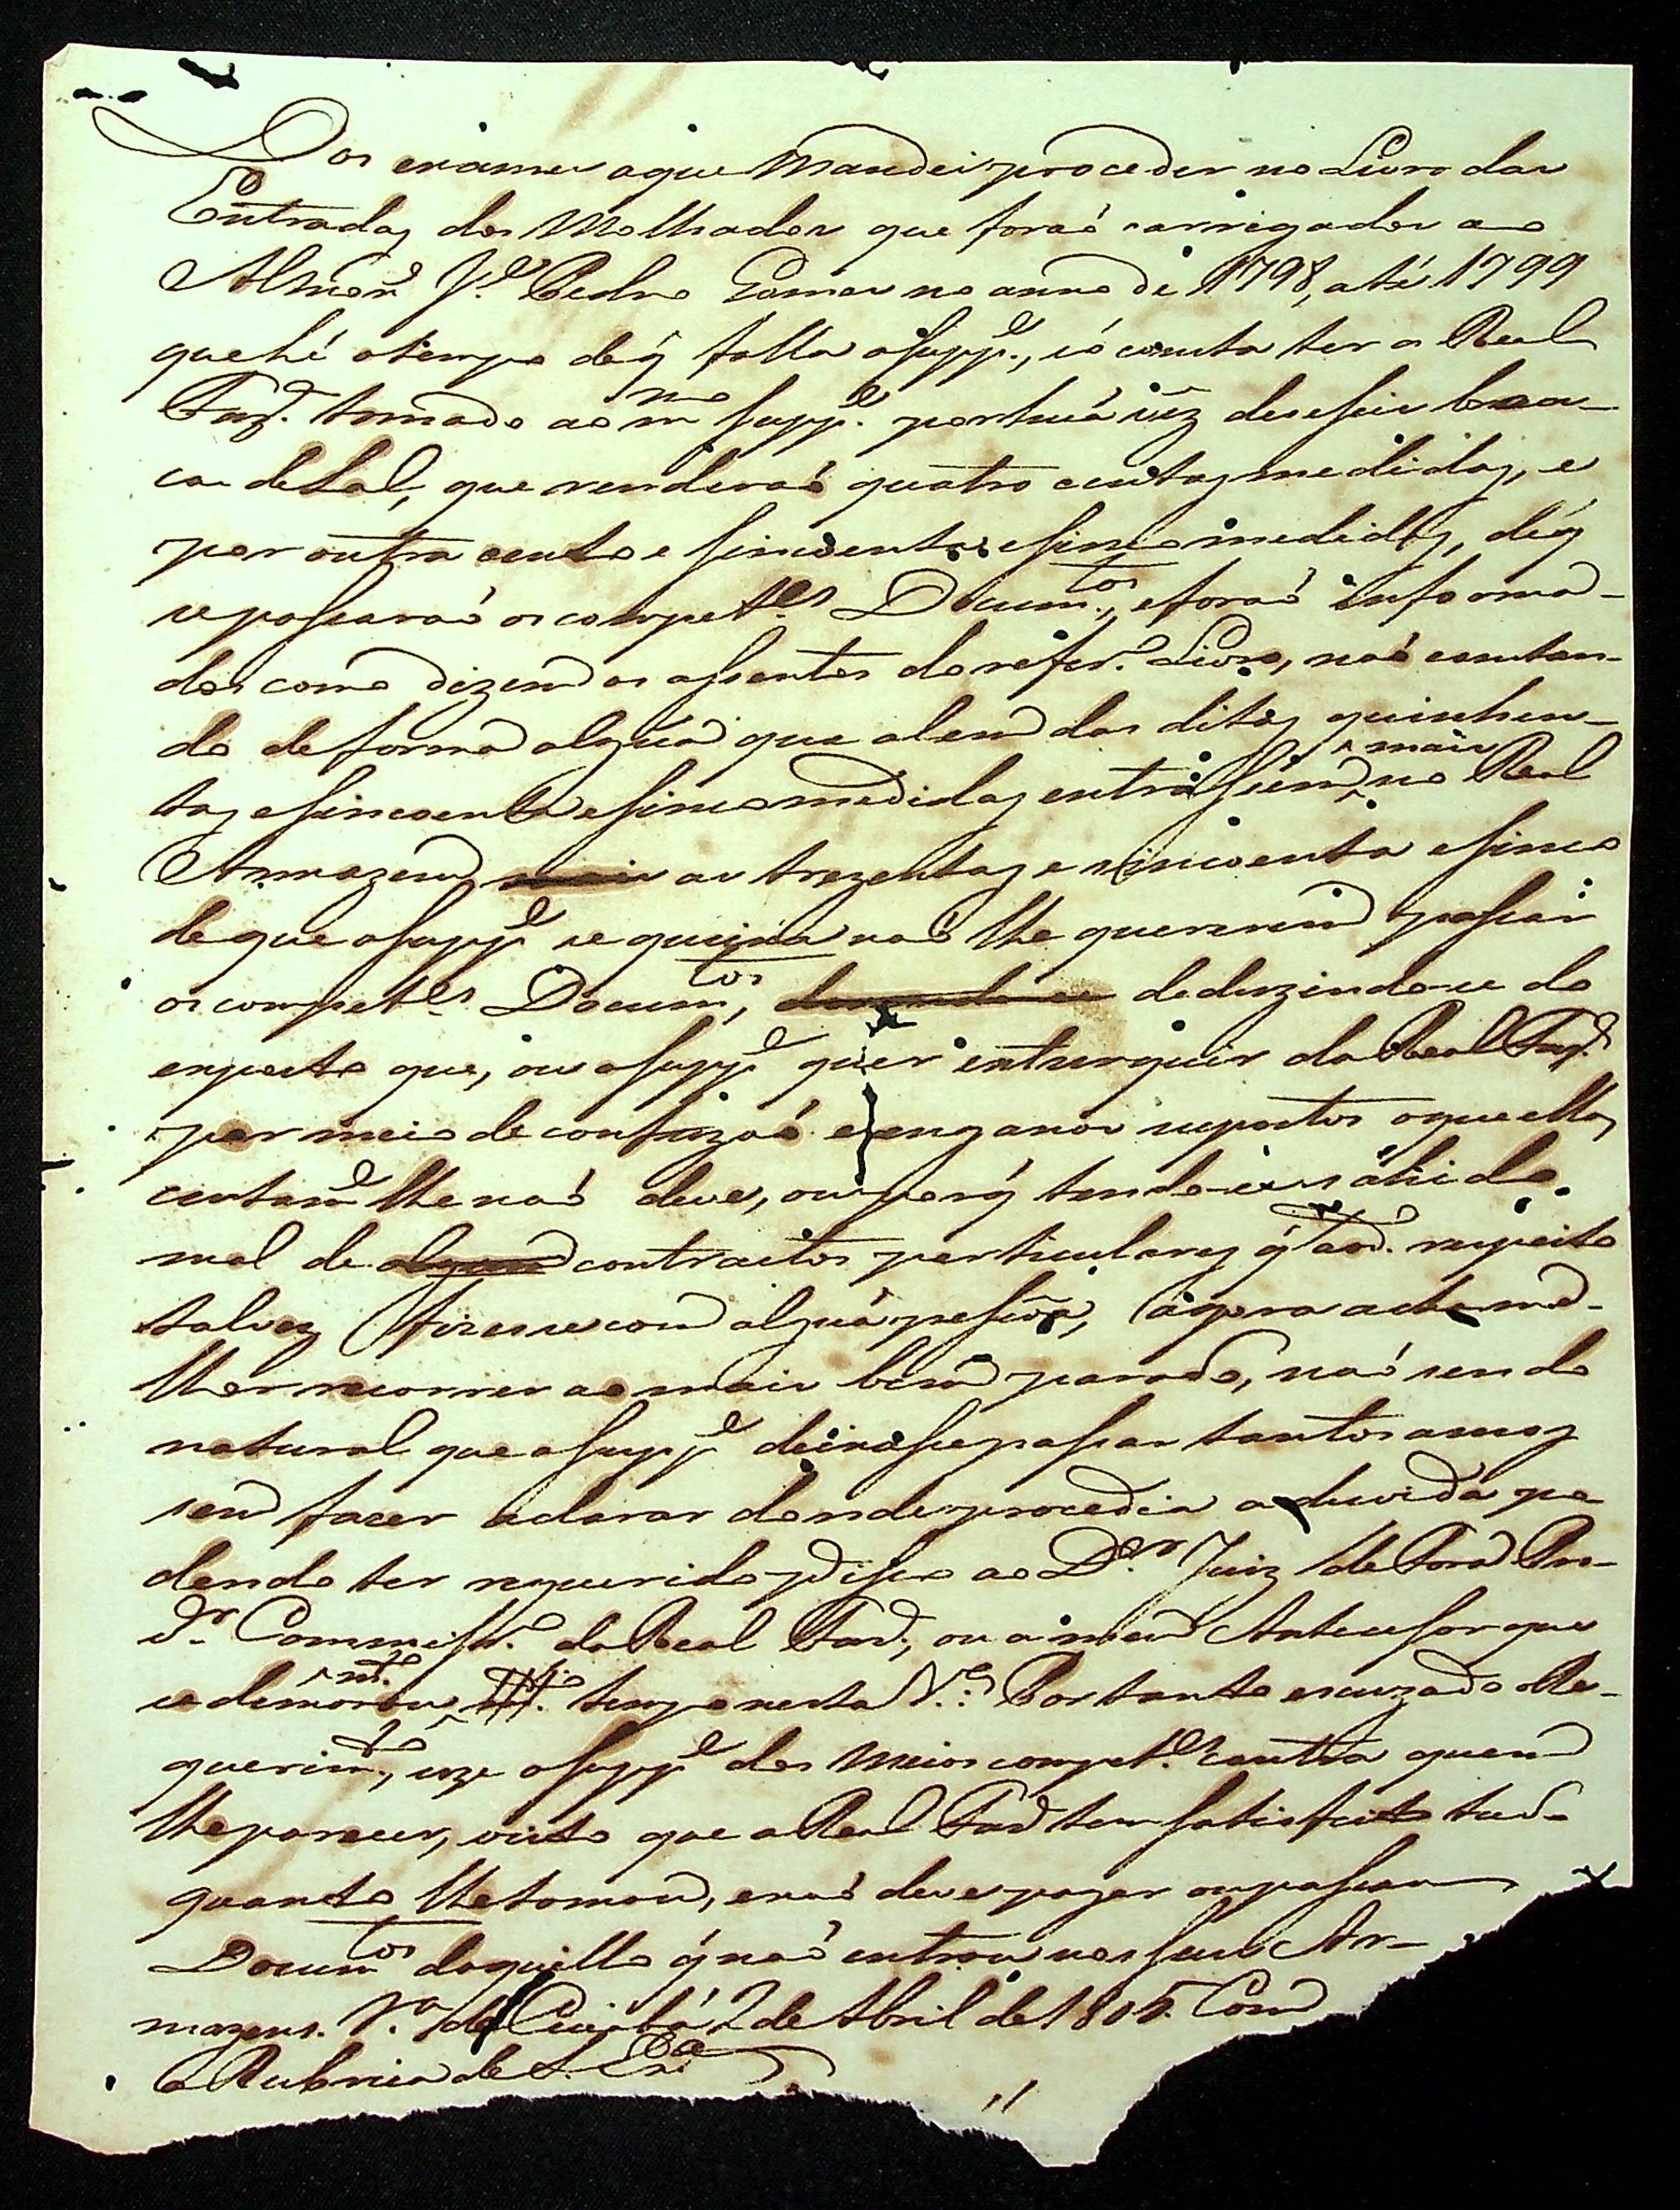 Dos exames aque Mandei proceder no Livro das
Entradas dos Molhados que foraõ carregados ao
Almox.e J.e Pedro Gomes no anno de 1798, até 1799
que hé otempo de q̃ falla oSupp.e, só consta ter a Real
Faz.da tomado ao m.mo Supp.e por huã vêz deseseis bru-
cas de Sal, que renderaõ quatro centas medidas, e
por outra cento e sincoenta, esinco medidas, de q̃
sepassaraõ os compet.es Docum.tos, eforaõ informa-
dos como dizem os assentos do refer.o Livro, naõ constan-
do de forma alguã que alem das ditas quinhen-
tas esincoenta esinco medidas entrassem mais no Real
Armazem as trezentas e sincoenta esinco
de que oSupp.e se queixa naõ lhe quererem passar
os compet.es Docum.tos, deduzindo-se do
exposto que, ou oSupp.e quer extorquir da Real Faz.da
por meio de confuzaõ e enganos supostos oque ella
certam.e lhe naõ deve, ou porq̃ tendo-se sahido
mal de contractos particulares q̃ a resp.to respeito
talvez fizesse com alguã pessoa, agora acha me-
lhor recorrer ao mais bem parado, naõ sendo
natural que oSupp.e deixasse passar tantos annos
sem fazer aclarar donde procedia a duvida po
dendo ter requerido p.a isso ao D.or Juiz de Fora Pro-
v.or Commiss.o da Real Faz.da, ou ameu Antecessor que
se demorou m.to tempo nesta V.a: Portanto escuzado oRe-
querim.to, uze oSupp.e dos Meios compet.es contra quem
lhe parecer, visto que a Real Faz.da tem satisfeito tudo
quanto lhe tomou, enaõ deve pagar ou passar
Docum.tos daquillo q̃ naõ entrou nos seus Ar-
mazens. V.a do Cuiabá 2 de Abril de 1805. Com
a Rubrica de S. Ex.a